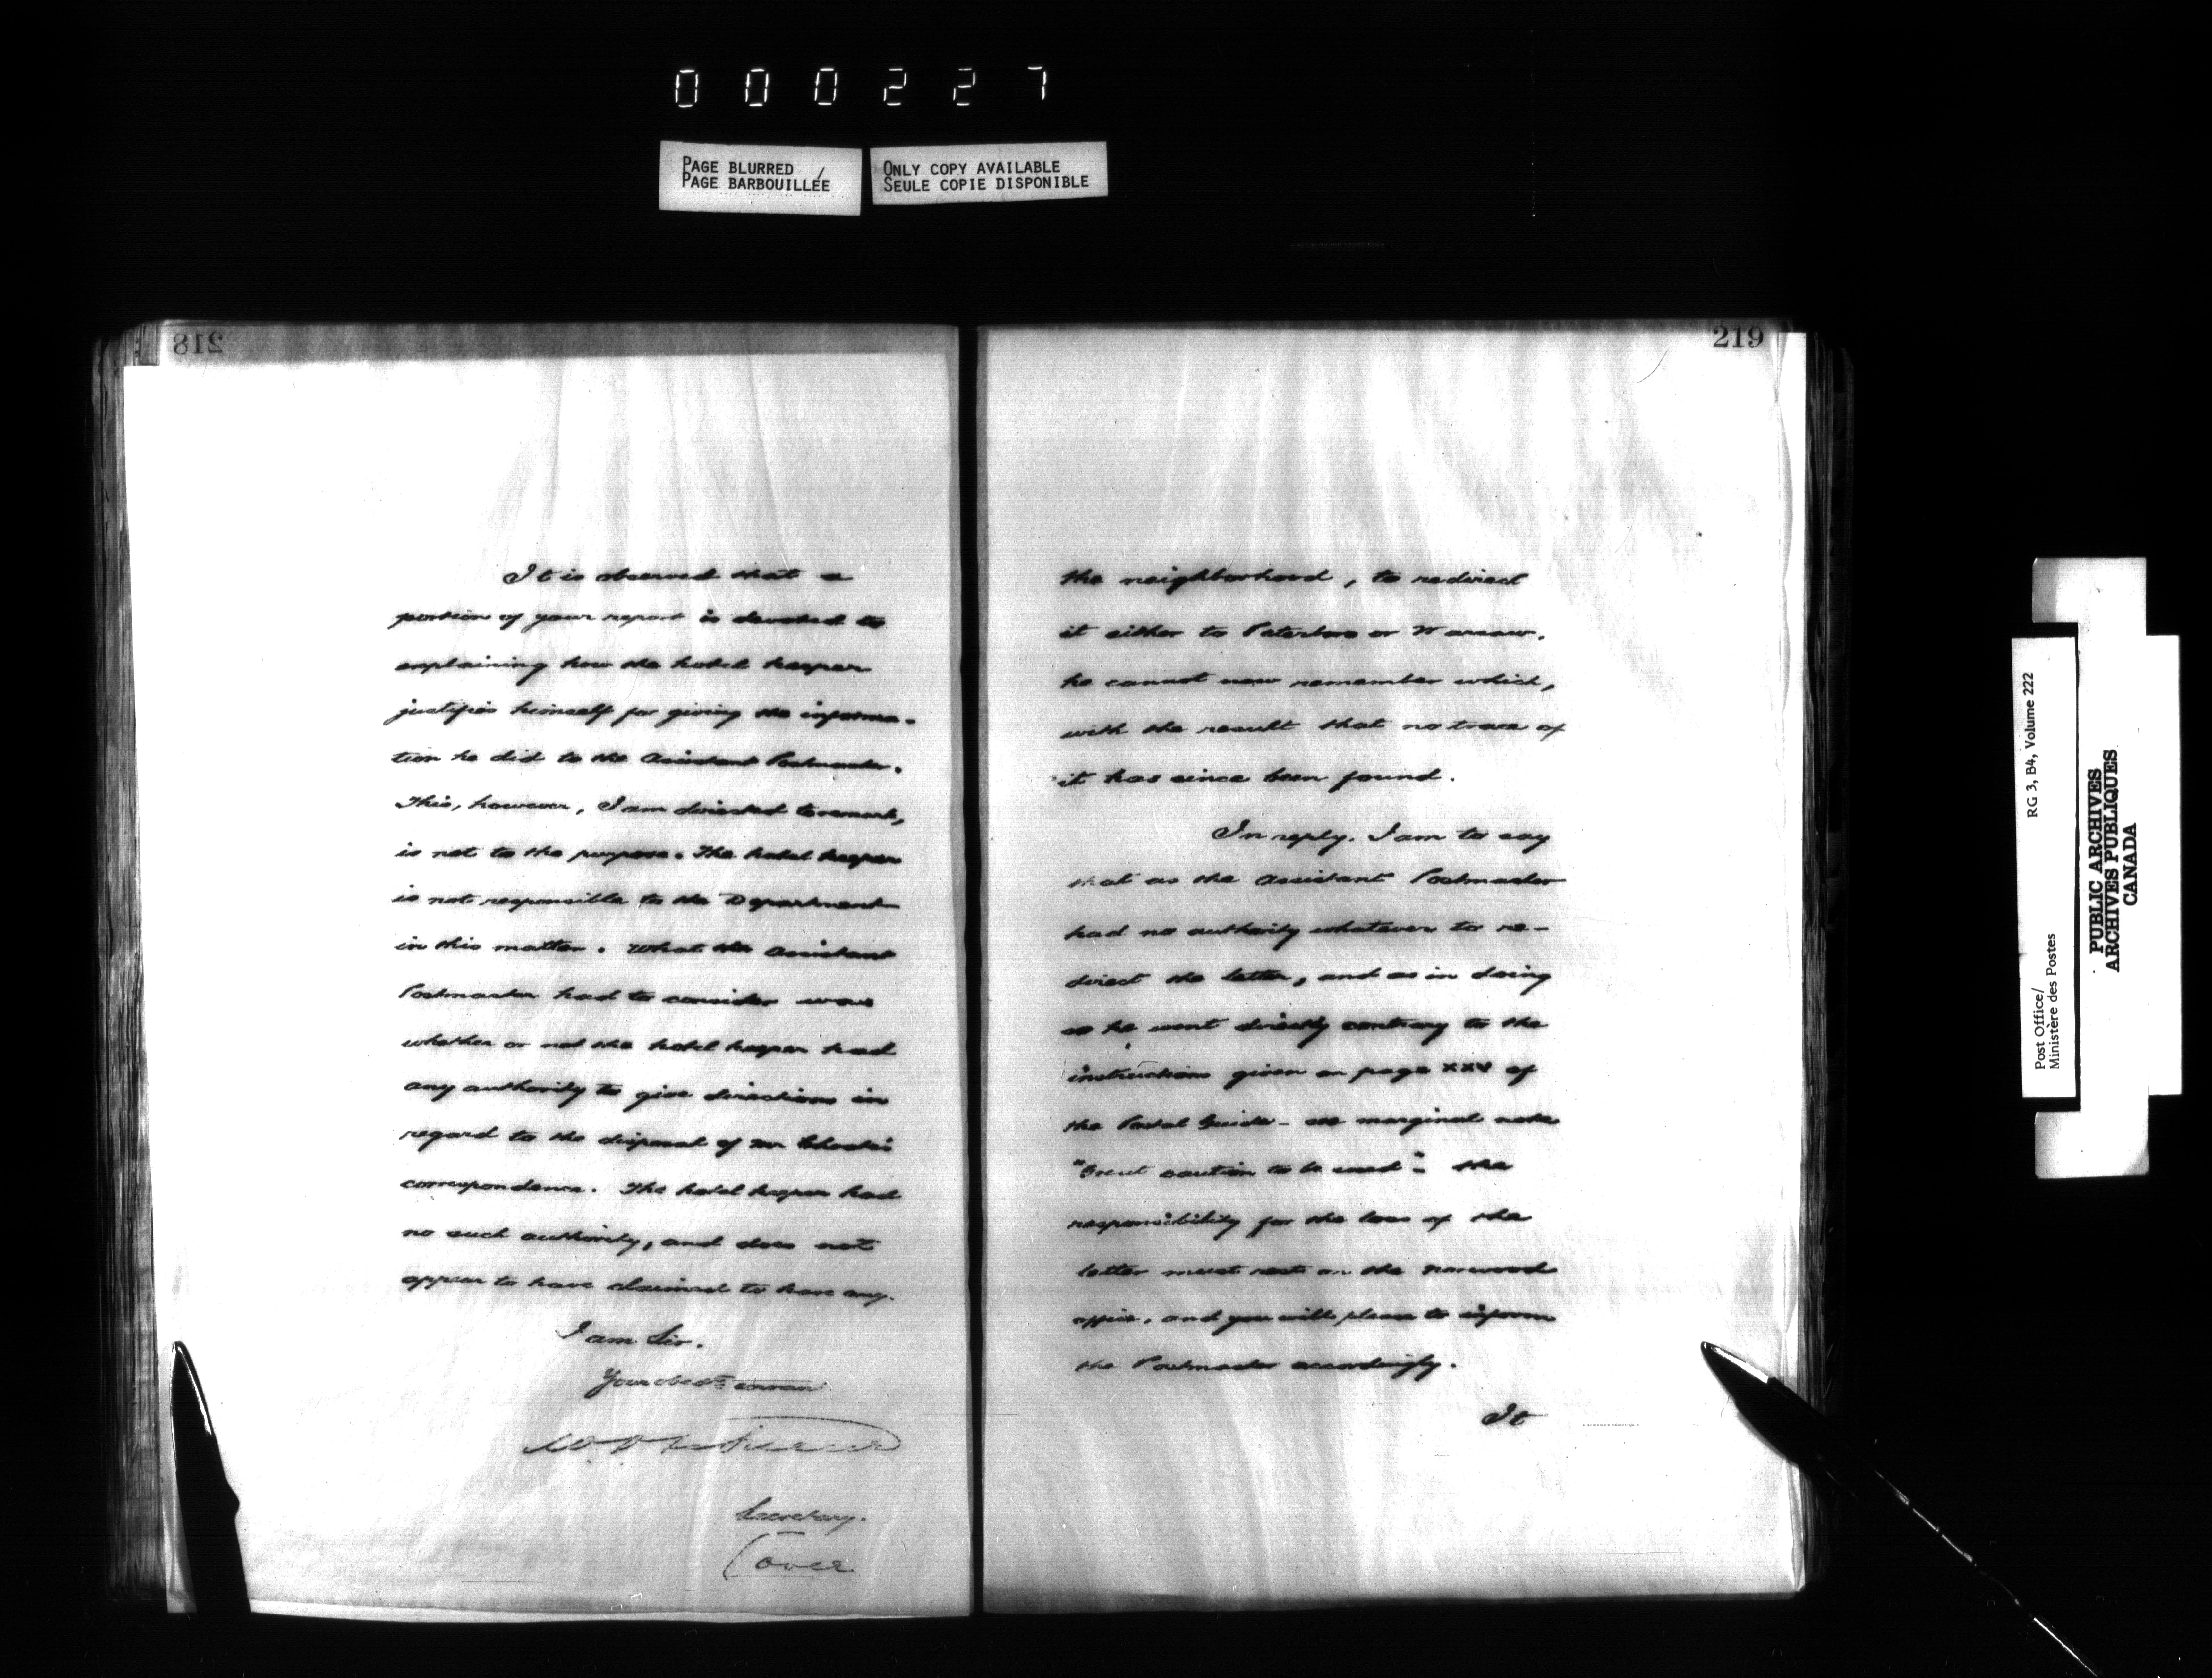 000227
PAGE BLURRED
PAGE BARBOUILLÉE
ONLY COPY AVAILABLE
SEULE COPIE DISPONIBLE
218
It is observed that a
portion of your report is devoted to
explaining how the hotel keeper
justifies himself for giving the informa-
tion he did to the Assistant Postmaster.
This, however, I am directed to remark,
is not to the purpose. The hotel keeper
is not responsible to the Department
in this matter. What the Assistant
Postmaster had to consider was
whether or not the hotel keeper had
any authority to give directions in
regard to the disposal of Mr
correspondence. The hotel keeper had
no such authority, and does not
appear to have claimed to have any.
I am Sir.
Your obedt servan
Secretary.
(over
219
the neighborhood, to redirect
it either to Peterboro or Warsaw,
he cannot now remember which,
with the result that no trace of
it has since been found.
In reply, I am to say
that as the Assistant Postmaster
had no authority whatever to re-
direct the letter, and as in doing
so he went directly contrary to the
instructions given on page xxv of
the Postal Guide - see marginal note
"Great caution to be used" - the
responsibility for the loss of the
letter must rest on the Norwood
office, and you will please to inform
the Postmaster accordingly.
It
Post Office/
Ministère des Postes
RG 3, B4, Volume 222
PUBLIC ARCHIVES
ARCHIVES PUBLIQUES
CANADA